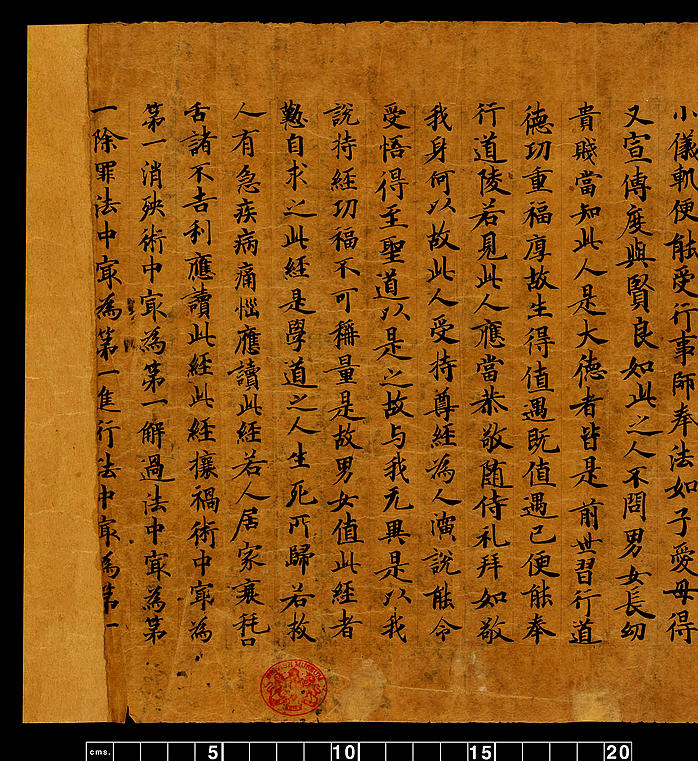 小儀軌便能受行事師奉法如子愛母得
又宣傳度與賢良如此之人不問男女長幼
貴賤當知此人是大德者皆是前世習行道
德功重福厚故生得值遇既值遇已便能奉
行道陵若見此人應當恭敬随侍礼拜如敬
我身何以故此人受持尊經為人演說能令
受悟得至聖道以是之故与我无異是以我
說持經功福不可稱量是故男女值此經者
懃自求之此經是學道之人生死所歸若救
人有急疾病痛惱應讀此經若人居家衰耗口
舌諸不吉利應讀此經此經攘禍術中冣為
第一消殃術中冣為第一解過法中冣為第
一除罪法中冣為第一進行法中冣為第一
BRITISH MUSEUM
cms. 5 10 15 20